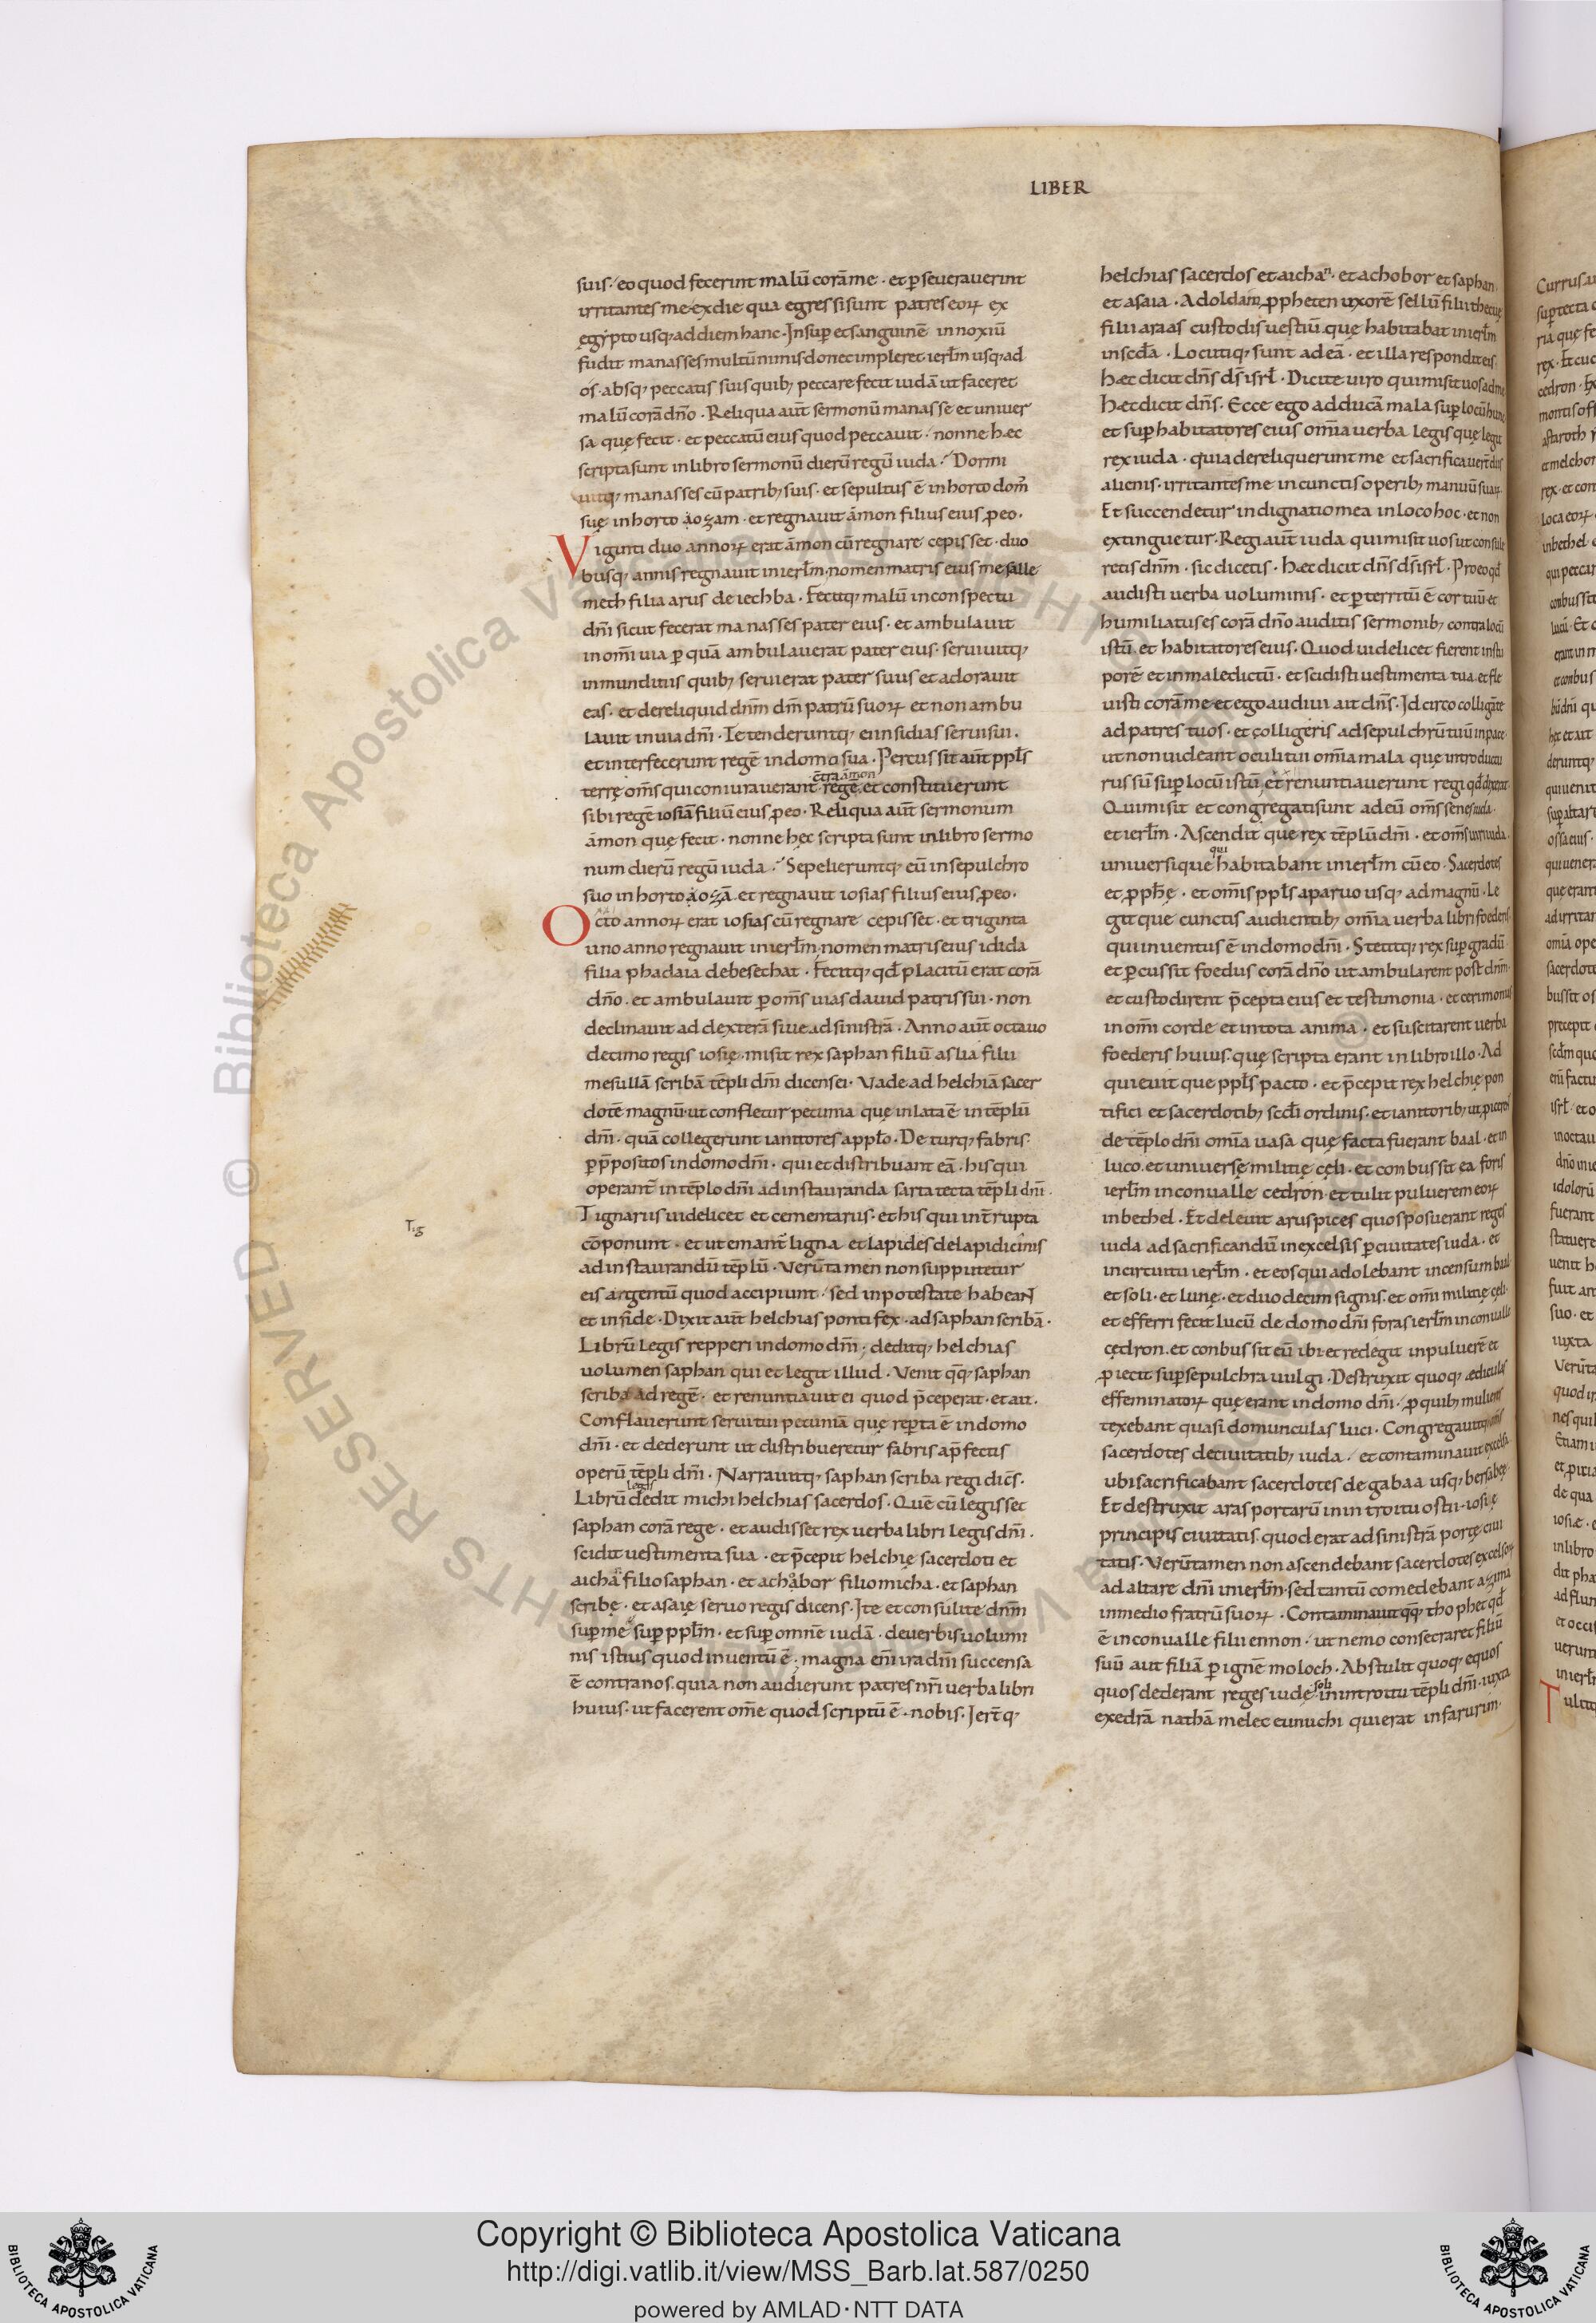 LIBER
suis · eo quod fecerint malū corā me · et pseuerauerint
irritantes me ex die qua egressi sunt patres eoꝝ ex
ęgypto usq; ad diem hanc · Insup et sanguinē innoxiū
fudit manasses multū nimis donec impleret ierłm usq; ad
os · absq; peccatis suis quib; peccare fecit iudā ut faceret
malū corā dn̄o · Reliqua aut̄ sermonū manasse et uniuer
sa quę fecit · et peccatū eius quod peccauit · nonne hæc
scripta sunt in libro sermonū dierū regū iuda · Dormi
uitq; manasses cū patrib; suis · et sepultus ē in horto dom̄
suę in horto aozam · et regnauit āmon filius eius ꝓ eo ·
Viginti duo annoꝝ erat āmon cū regnare cepisset · duo
busq; annis regnauit in ierłm · nomen matris eius mesalle
meth filia arus de iechba · Fecitq; malū in conspectu
dn̄i sicut fecerat manasses pater eius · et ambulauit
in om̄i uia p quā ambulauerat pater eius · seruiuitq;
inmunditiis quib; seruierat pater suus et adorauit
eas · et dereliquid dn̄m dm̄ patrū suoꝝ et non ambu
lauit in uia dn̄i · Tetenderuntq; ei insidias serui sui ·
et interfecerunt regē in domo sua · Percussit aut̄ ppłs
terrę om̄s qui coniurauerant c̄tra āmon regē · et constituerunt
sibi regē iosiā filiū eius ꝓ eo · Reliqua aut̄ sermonum
āmon quę fecit · nonne hęc scripta sunt in libro sermo
num dierū regū iuda · Sepelieruntq; eū in sepulchro
suo in horto aozā · et regnauit iosias filius eius ꝓ eo ·
Octo annoꝝ erat iosias cū regnare cepisset · et triginta
uno anno regnauit in ierłm · nomen matris eius idida
filia phadaia de besechat · Fecitq; qd̄ placitū erat corā
dn̄o · et ambulauit p om̄s uias dauid patris sui · non
declinauit ad dexterā siue ad sinistrā · Anno aut̄ octauo
decimo regis iosię · misit rex saphan filiū aslia filii
mesullā scribā tēpli dn̄i dicens ei · Vade ad helchiā sacer
dotē magnū · ut confletur pecunia quę inlata ē in tēplū
dn̄i · quā collegerunt ianitores a ppło · Deturq; fabris
p p̄positos in domo dn̄i · qui et distribuant eā · his qui
operant̄ in tēplo dn̄i ad instauranda sarta tecta tēpli dn̄i ·
Tignariis uidelicet et cementariis · et his qui int̄rupta
cōponunt · et ut emant̄ ligna et lapides de lapidicinis
ad instaurandū tēplū · Verūtamen non supputetur
eis argentū quod accipiunt · sed in potestate habeant
et in fide · Dixit aut̄ helchias pontifex · ad saphan scribā ·
Librū legis repperi in domo dn̄i · deditq; helchias
uolumen saphan qui et legit illud · Venit q̄q; saphan
scriba ad regē · et renuntiauit ei quod p̄ceperat · et ait ·
Conflauerunt serui tui pecuniā quę repta ē in domo
dn̄i · et dederunt ut distribueretur fabris a p̄fectis
operū tēpli dn̄i · Narrauitq; saphan scriba regi dic̄s ·
Librū legis dedit michi helchias sacerdos · Quē cū legisset
saphan corā rege · et audisset rex uerba libri legis dn̄i ·
scidit uestimenta sua · et p̄cepit helchię sacerdoti et
aichā filio saphan · et achabor filio micha · et saphan
scribę · et asaię seruo regis dicens · Ite et consulite dn̄m
sup me sup ppłm · et sup omnē iudā · de uerbis uolumi
nis istius quod inuentū ē · magna eni ira dn̄i succensa
ē contra nos · quia non audierunt patres nr̄i uerba libri
huius · ut facerent om̄e quod scriptū ē · nobis · Ier̄tq;
T·g
helchias sacerdos et aichan · et achobor et saphan ·
et asaia · Ad oldam ꝓpheten uxorē sellū filii thecuę
filii araas custodis uestiū · quę habitabat in ierłm
in scd̄a · Locutiq; sunt ad eā · et illa respondit eis
Hæc dicit dn̄s ds̄ isrł · Dicite uiro qui misit uos ad me
Hæc dicit dn̄s · Ecce ego adducā mala sup locū hunc
et sup habitatores eius om̄ia uerba legis quę legit
rex iuda · quia dereliquerunt me et sacrificauer̄t diis
alienis · irritantes me in cunctis operib; manuū suaꝝ ·
Et succendetur indignatio mea in loco hoc · et non
extinguetur · Regi aut̄ iuda qui misit uos ut consule
retis dn̄m · sic dicetis · Hæc dicit dn̄s ds̄ isrł · Pro eo qd̄
audisti uerba uoluminis · et pterritū ē cor tuū et
humiliatus es corā dn̄o auditis sermonib; contra locū
istū et habitatores eius · Quod uidelicet fierent in stu
porē et in maledictū · et scidisti uestimenta tua et fle
uisti corā me et ego audiui ait dn̄s · Idcirco colligāte
ad patres tuos · et colligeris ad sepulchrū tuū in pace
ut non uideant oculi tui om̄ia mala quę introductu
rus sū sup locū istū · et renuntiauerunt regi qd̄ dixerat
Qui misit et congregati sunt ad eū om̄s senes iuda ·
et ierłm · Ascenditque rex tēplū dn̄i · et om̄s uiri iuda ·
uniuersique qui habitabant in ierłm cū eo · Sacerdotes
et ꝓphę · et om̄is ppłs a paruo usq; ad magnū · Le
gitque cunctis audientib; om̄ia uerba libri foederis
qui inuentus ē in domo dn̄i · Stetitq; rex sup gradū
et pcussit foedus corā dn̄o ut ambularent post dn̄m ·
et custodirent p̄cepta eius et testimonia · et cerimonias
in om̄i corde et in tota anima · et suscitarent uerba
foederis huius · quę scripta erant in libro illo · Ad
quieuitque ppłs pacto · et p̄cepit rex helchię pon
tifici et sacerdotib; scd̄i ordinis · et ianitorib; ut ꝓicerent
de tēplo dn̄i om̄ia uasa quę facta fuerant baal · et in
luco · et uniuersę militię cęli · et conbussit ea foris
ierłm in conualle cedron · et tulit puluerem eoꝝ
in bethel · Et deleuit aruspices quos posuerant reges
iuda ad sacrificandū in excelsis p ciuitates iuda · et
in circuitu ierłm · et eos qui adolebant incensum baal
et soli · et lunę · et duodecim signis · et om̄i militię cęli ·
et efferri fecit lucū de domo dn̄i foras ierłm in conualle
cędron · et conbussit eū ibi et redegit in puluerē et
ꝓiecit sup sepulchra uulgi · Destruxit quoq; ædiculas
effeminatoꝝ quę erant in domo dn̄i · ꝓ quib; mulieres
texebant quasi domunculas luci · Congregauitq; om̄s
sacerdotes de ciuitatib; iuda · et contaminauit excelsa
ubi sacrificabant sacerdotes de gabaa usq; bersabęę ·
Et destruxit aras portarū in introitu ostii · iosię
principis ciuitatis · quod erat ad sinistrā portę ciui
tatis · Verūtamen non ascendebant sacerdotes excelsoꝝ
ad altare dn̄i in ierłm · sed tantū comedebant azima
in medio fratrū suoꝝ · Contaminauit q̄q; thophet qd̄
ē in conualle filii ennon · ut nemo consecraret filiū
suū aut filiā p ignē moloch · Abstulit quoq; equos
quos dederant reges iudę soli in introitu tēpli dn̄i · iuxta
exedrā nathā melec eunuchi qui erat in farurim ·
Copyright © Biblioteca Apostolica Vaticana
http://digi.vatlib.it/view/MSS_Barb.lat.587/0250
powered by AMLAD·NTT DATA
BIBLIOTECA APOSTOLICA VATICANA
BIBLIOTECA APOSTOLICA VATICANA